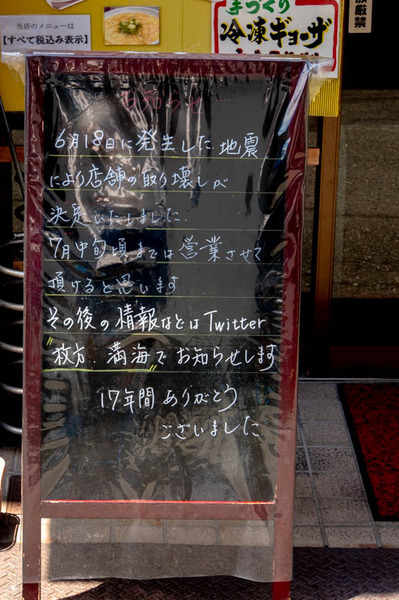 当店のメニューは
【すべて税込み表示】
手づくり
冷凍ギョーザ
厳禁
6月18日に発生した地震
により店舗の取り壊しが
決定いたしました.
7月中旬頃までは営業させて
頂けると思います
その後の情報などはTwitter
"枚方 満海"でお知らせします
17年間ありがとう
ございました